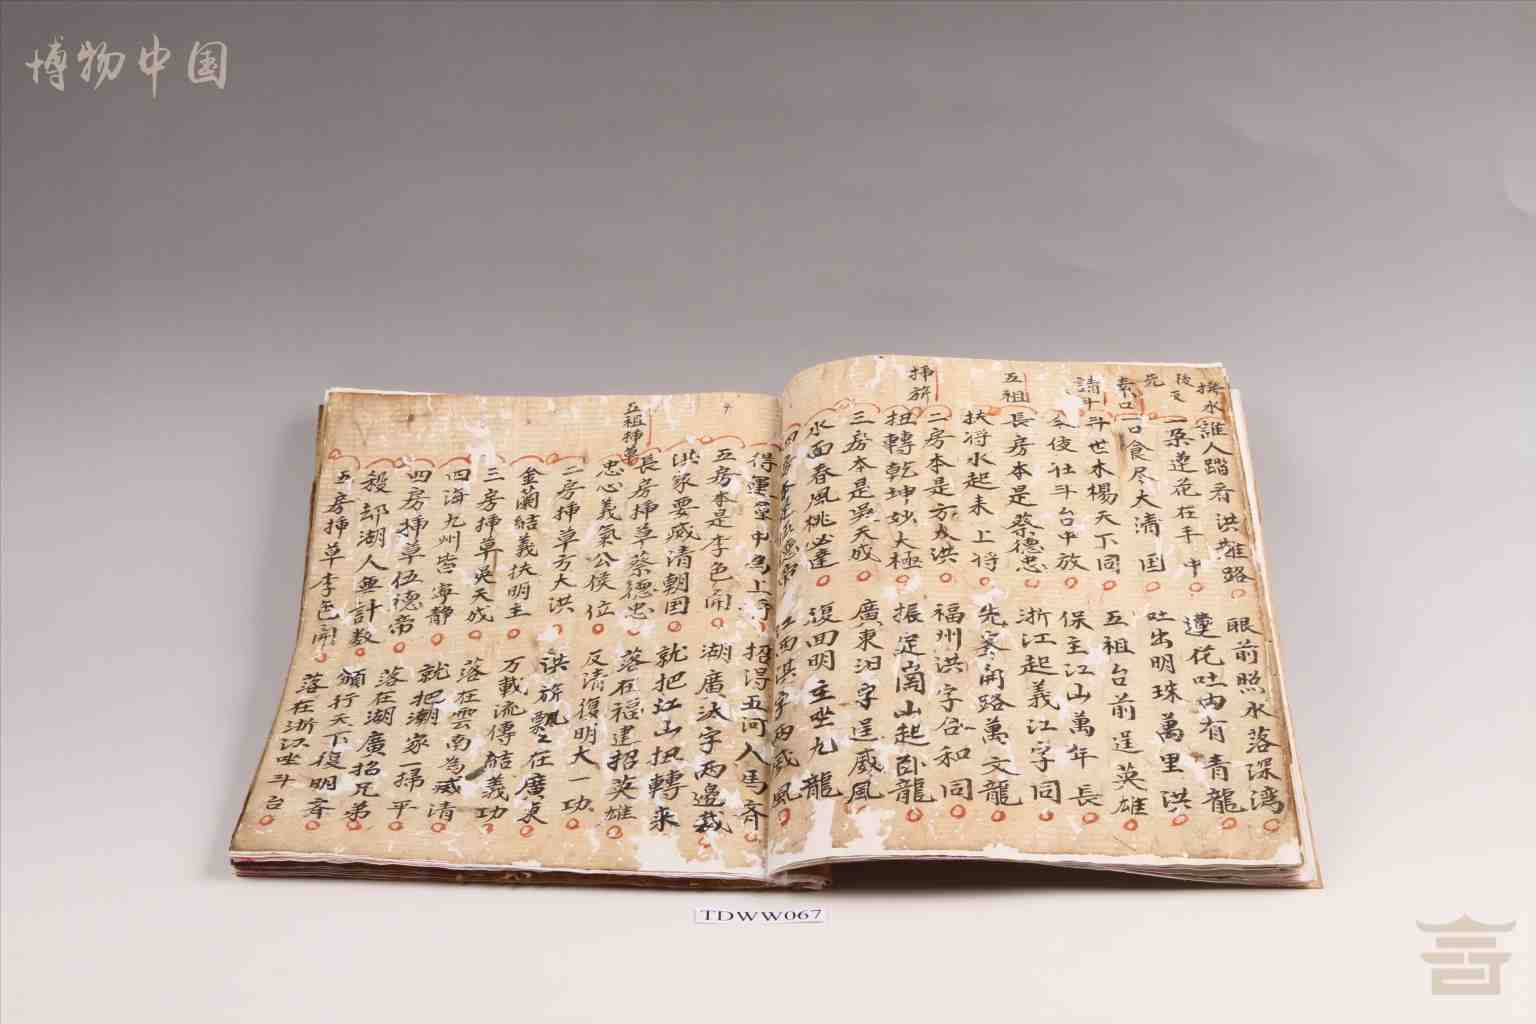 博物中国
攃水
誰人踏看洪雅路
眼前照水落深灣
後又
一朶蓮花在手中
蓮花吐内有青龍
先
素口
一口食尽大清国
吐出明珠萬里洪
請斗
斗世木楊天下同
五祖台前逞英雄
社斗台中放
保主江山萬年長
五祖
長房本是蔡德忠
浙江起義江字同
扶将水起来上将
先峯開路萬文龍
掃旂
二房本是方大洪
福州洪字合和同
扭轉乾坤妙大極
振定崗山起卧龍
三房本是吳天成
廣東汨字逞威風
水面春風桃必達
復回明主坐九龍
字両威風
得運
中為上将
招得五河人馬齊
五房本是李色開
湖廣汰字两邉裁
洪家要威清朝国
就把江山扭轉来
五祖掃草
長房掃草蔡德忠
落在福建招英雄
忠心義氣公侯位
反清復明大一功
二房掃草方大洪
洪旂飄飄在廣東
金蘭結義扶明主
万載流傳結義功
三房掃草吳天成
落在雲南為威清
四海九州皆寧静
就把潮家一掃平
四房掃草伍德帝
落在湖廣招兄弟
殺却湖人無計数
頒行天下復明齊
五房掃草李色開
落在浙江坐斗台
TDWW067